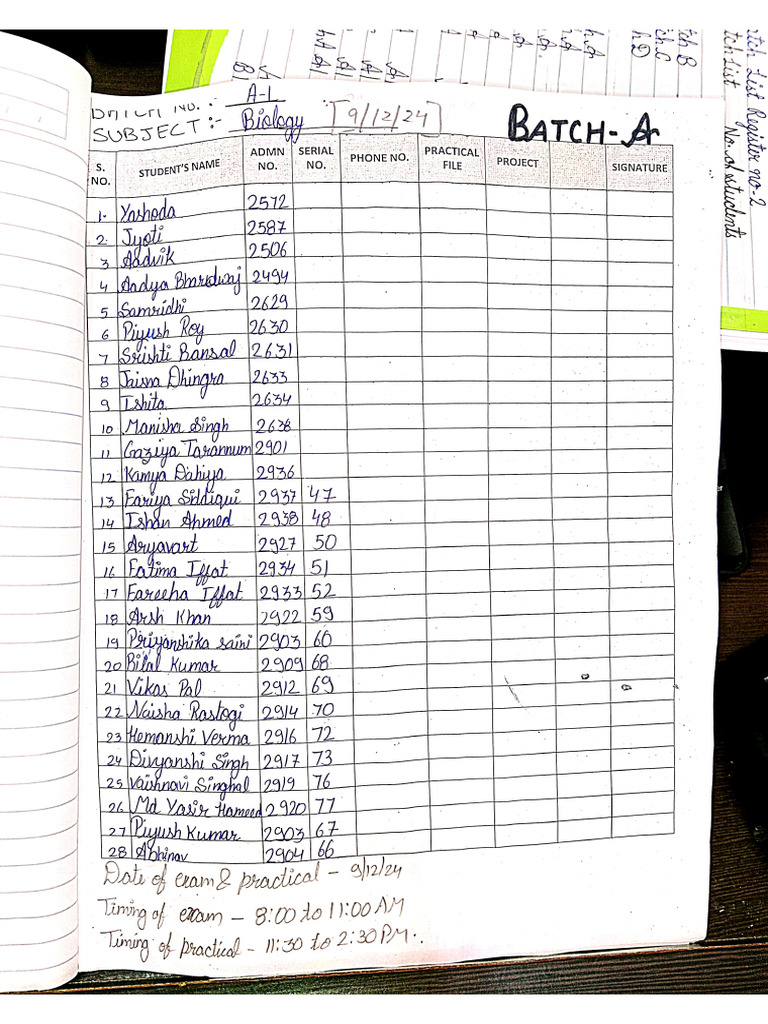 BATCH NO. :- A-1
SUBJECT :- Biology [9/12/24] BATCH-A
S. NO. STUDENT'S NAME ADMN NO. SERIAL NO. PHONE NO. PRACTICAL FILE PROJECT SIGNATURE
1. Yashoda 2572
2. Jyoti 2587
3 Aadvik 2506
4 Aadya Bhardwaj 2494
5 Samridhi 2629
6 Piyush Roy 2630
7 Srishti Bansal 2631
8 Jaisna Dhingra 2633
9 Ishita 2634
10 Manisha Singh 2638
11 Gaziya Tarannum 2901
12 Kamya Dahiya 2936
13 Fariya Siddiqui 2937 47
14 Ishan Ahmed 2938 48
15 Aryavart 2927 50
16 Fatima Iffat 2934 51
17 Fareeha Iffat 2933 52
18 Arsh Khan 2922 59
19 Priyanshika saini 2903 60
20 Bilal Kumar 2909 68
21 Vikas Pal 2912 69
22 Naisha Rastogi 2914 70
23 Hemanshi Verma 2916 72
24 Divyanshi Singh 2917 73
25 Vaishnavi Singhal 2919 76
26 Md Yasir Hameed 2920 77
27 Piyush Kumar 2903 67
28 Abhinav 2904 66
Date of exam & practical - 9/12/24
Timing of exam - 8:00 to 11:00 AM
Timing of practical - 11:30 to 2:30 PM.
List Register no-2
No. of students